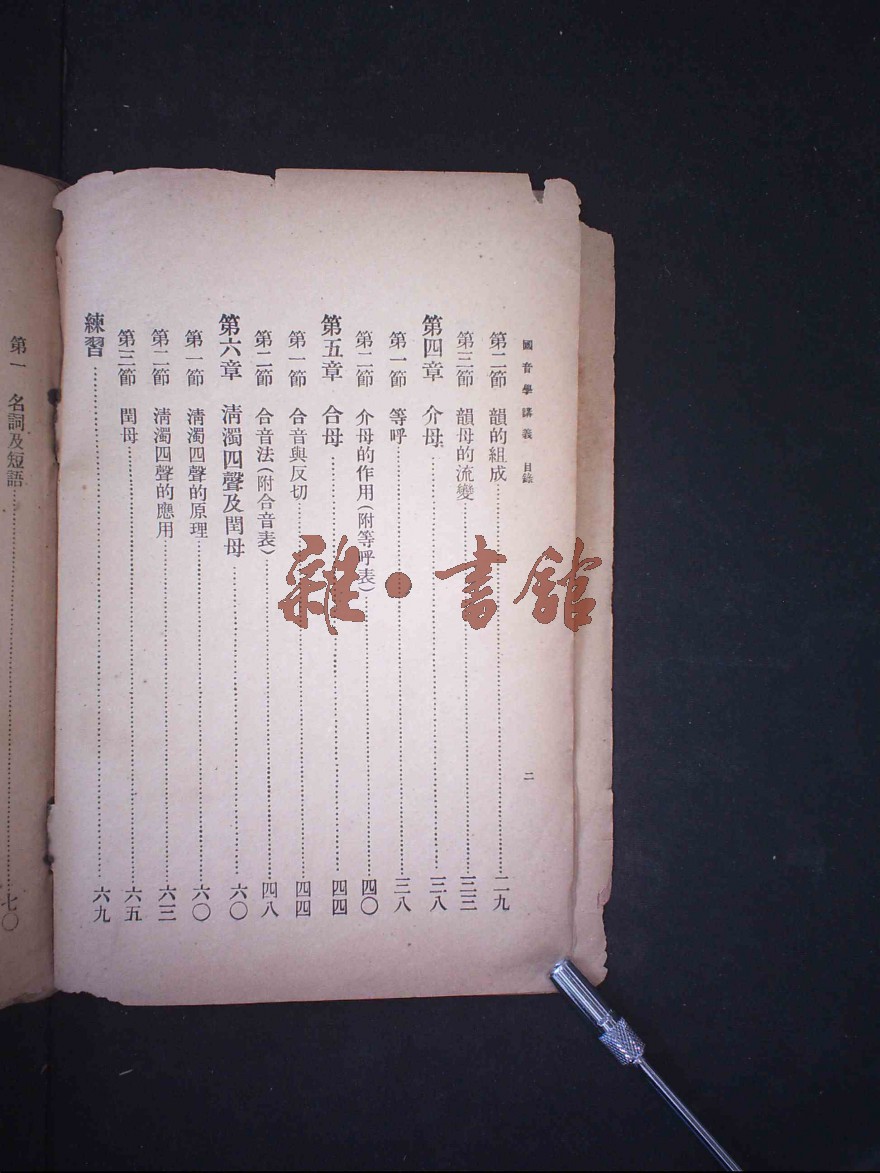 國音學講義 目錄 二
第二節 韻的組成 二九
第三節 韻母的流變 三三
第四章 介母 三八
第一節 等呼 三八
第二節 介母的作用(附等呼表) 四〇
第五章 合母 四四
第一節 合音與反切 四四
第二節 合音法(附合音表) 四八
第六章 清濁四聲及閏母 六〇
第一節 清濁四聲的原理 六〇
第二節 清濁四聲的應用 六三
第三節 閏母 六五
練習 六九
第一 名詞及短語 七〇
雜·書館